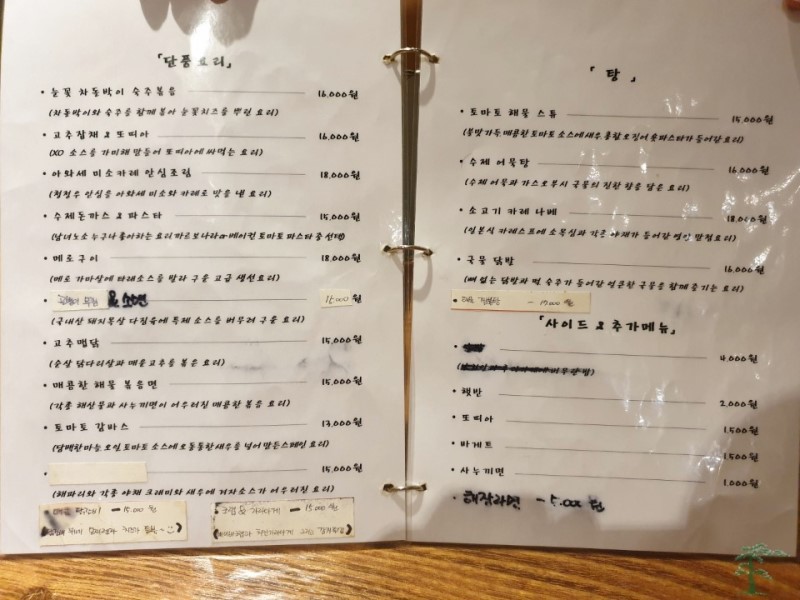 「단품요리」
• 눈꽃 차돌박이 숙주볶음 16,000원
(차돌박이와 숙주를 함께 볶아 눈꽃치즈를 뿌린 요리)
• 고추잡채 & 또띠아 16,000원
(XO 소스를 가미해 만들어 또띠아에 싸먹는 요리)
• 아와세 미소카레 안심조림 18,000원
(청정우 안심을 아와세 미소와 카레로 맛을 낸 요리)
• 수제돈까스 & 파스타 15,000원
(남녀노소 누구나 좋아하는 요리 까르보나라or베이컨 토마토 파스타 중 선택)
• 메로구이 18,000원
(메로 가마살에 타래소스를 발라 구운 고급 생선요리)
& 소면 15,000원
(국내산 돼지목살 다짐육에 특제 소스를 버무려 구운 요리)
• 고추맵닭 15,000원
(순살 닭다리살과 매운고추를 볶은 요리)
• 매콤한 해물 볶음면 15,000원
(각종 해산물과 사누끼면이 어우러진 매콤한 볶음 요리)
• 토마토 감바스 13,000원
(담백한 마늘 오일 토마토 소스에 오동통한 새우를 넣어 만든 스페인 요리)
15,000원
(해파리와 각종 야채 크래미와 새우에 겨자소스가 어우러진 요리)
— 15.000 원
— 15.000 원
「탕」
• 토마토 해물 스튜 15,000원
(불맛 가득 매콤한 토마토 소스에 새우 홍합 오징어 숏파스타가 들어간 요리)
• 수제 어묵탕 16,000원
(수제 어묵과 가스오부시 국물의 진한 맛을 담은 요리)
• 소고기 카레 나베 18,000원
(일본식 카레스프에 소목심과 각종 야채가 들어간 영민 맏형요리)
• 국물 닭발 16,000원
(뼈 없는 닭발과 떡 숙주가 들어간 얼큰한 국물을 함께 즐기는 요리)
— 15000 원
「사이드 & 추가메뉴」
4,000원
• 햇반 2,000원
• 또띠아 1,500원
• 바게트 1,500원
• 사누끼면 1,000원
• 해장라면 — 5.000 원